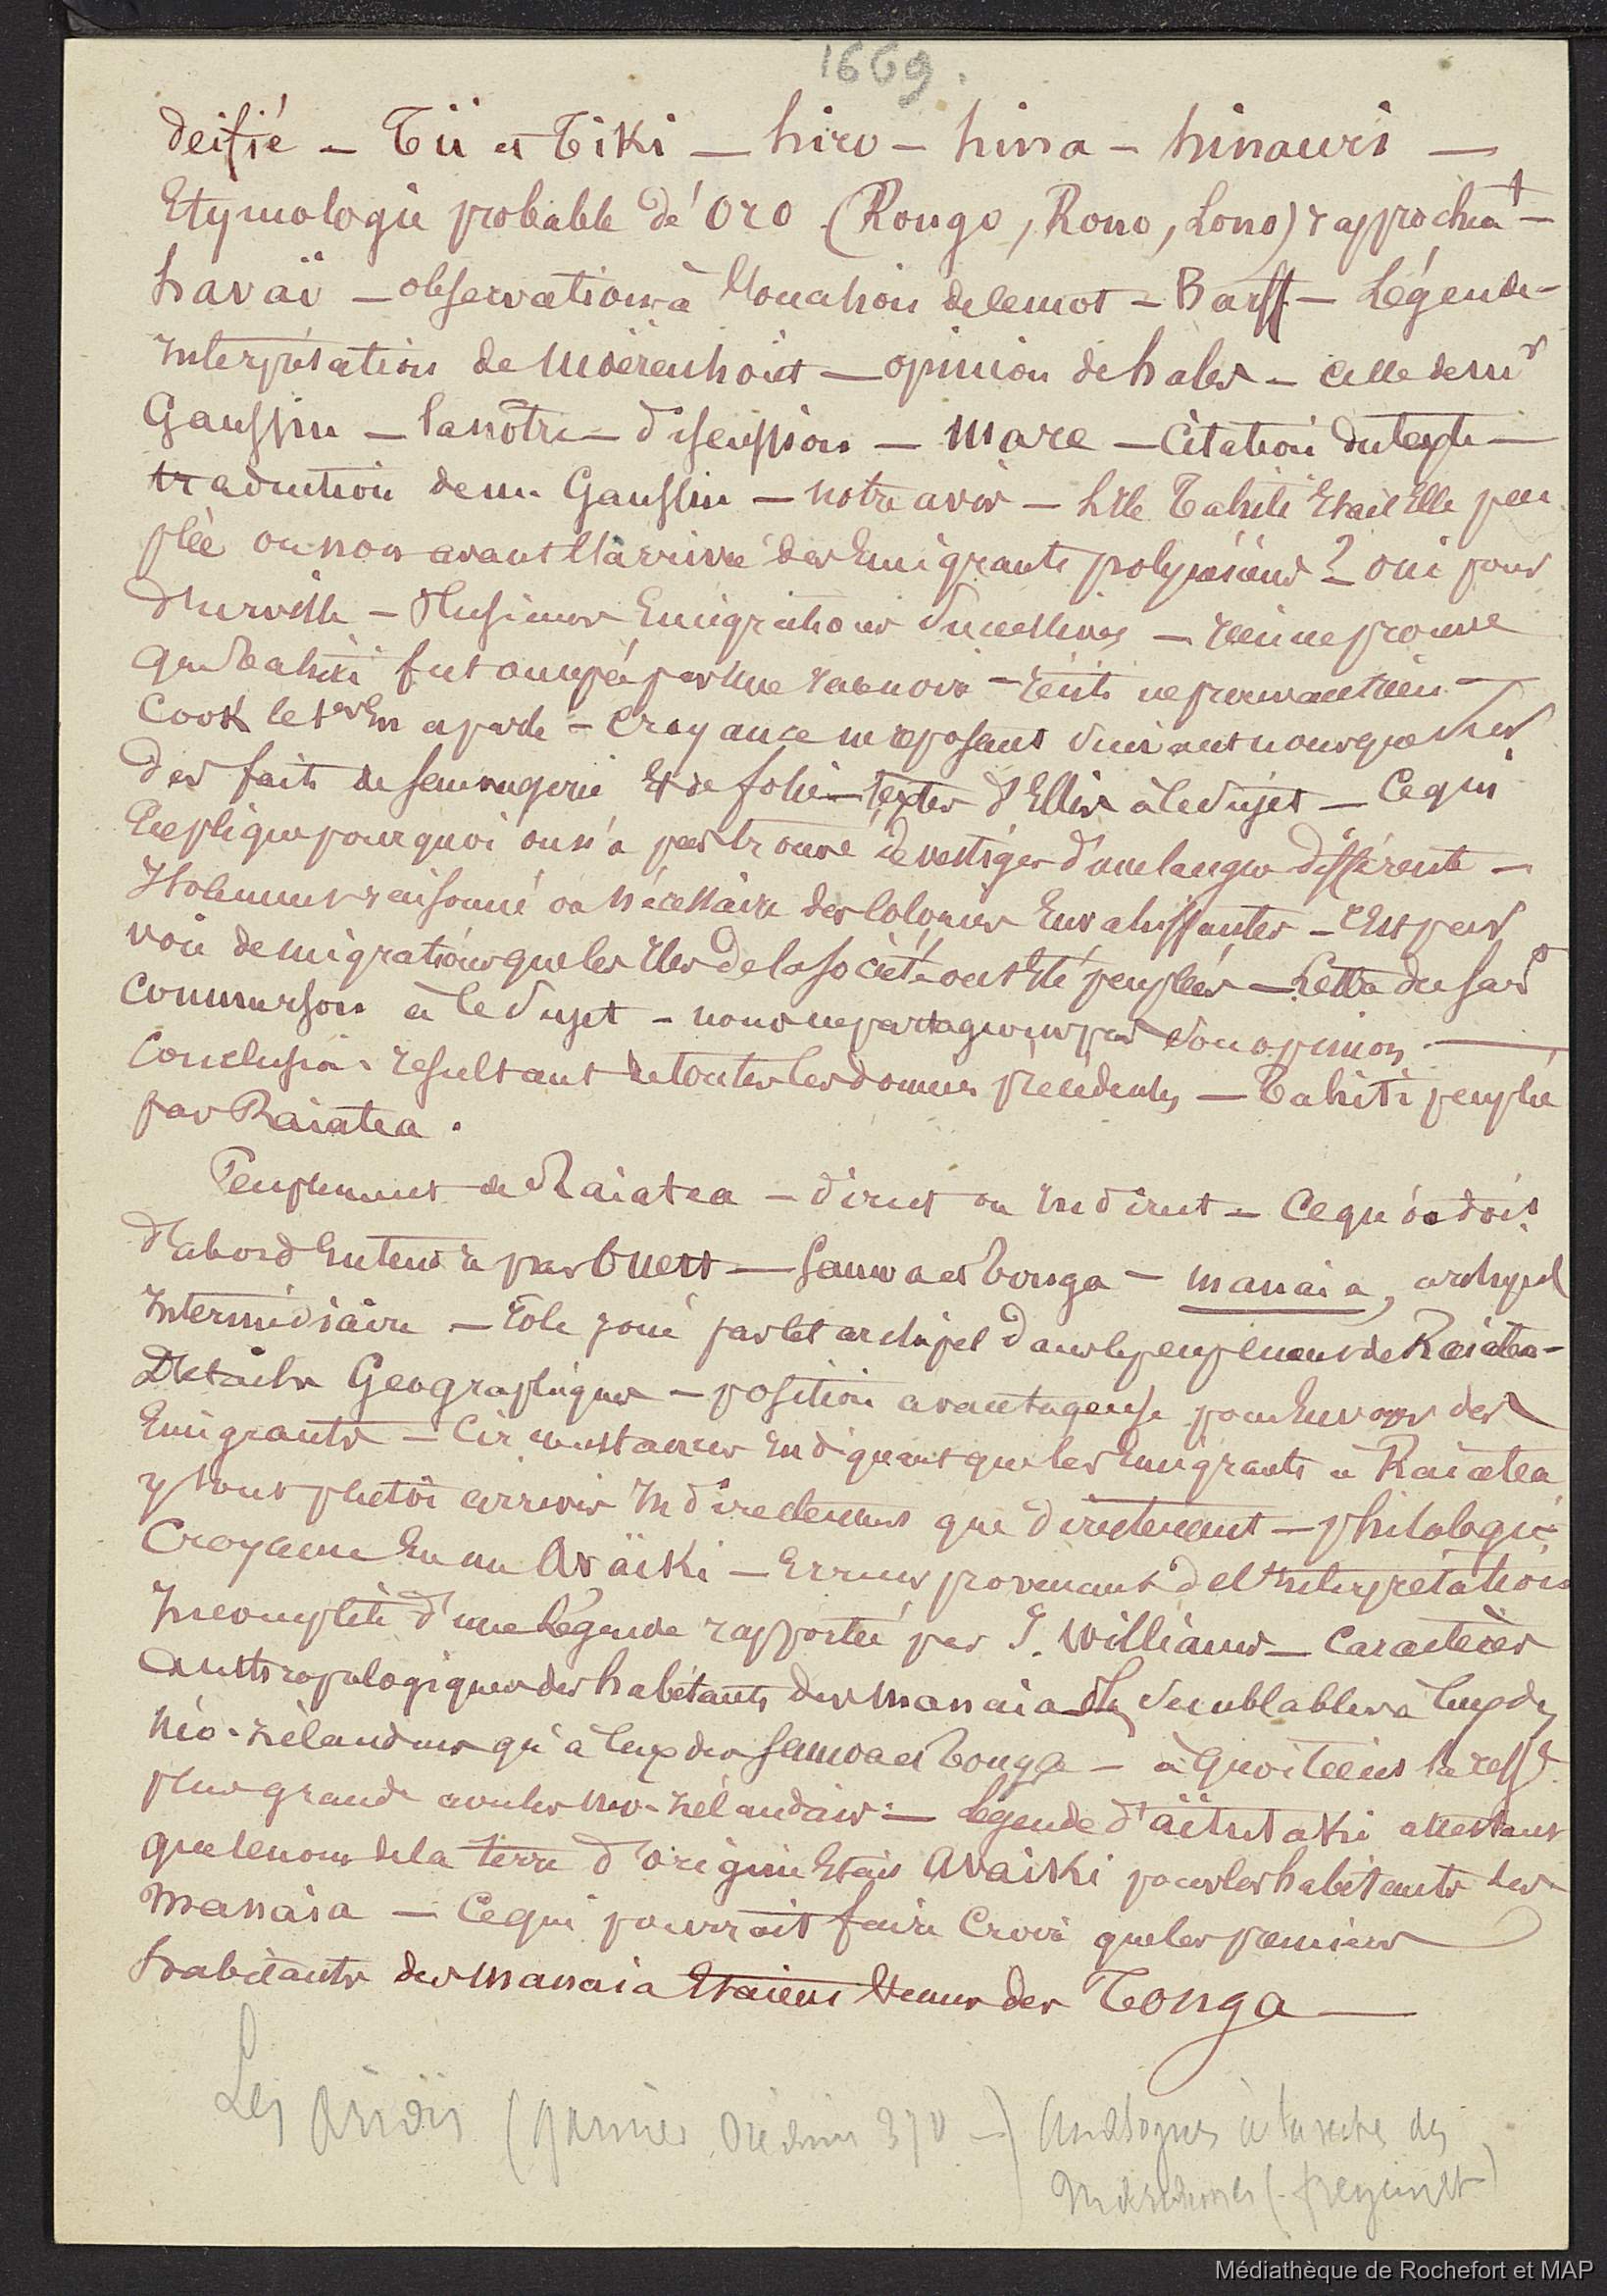 1669.
deifié — Tii et Tiki — hiro — hina — hinauri —
Etymologie probable de Oro (Rongo, Rono, Lono) rapprochet —
havaï — observations à l'occasion de ce mot — Barff — Légende —
Interprétation de Moërenhoüt — opinion de hales — celle de Mr
Gaussin — la nôtre — discussion — mare — citation du texte —
traduction de m. Gaussin — notre avis — L'île Tahiti Etait Elle peu
plée ou non avant l'arrivée des Emigrants polynésiens ? oui pour
d'urville — Plusieurs Emigrations successives — rien ne prouve
que Tahiti fut occupée par une race noire — récits ne prouvant rien —
Cook le 1er En a parlé — Croyance ne reposant suivant nous que sur
des faits de sauvagerie Et de folie — Textes d'Ellis à ce sujet — Ce qui
Explique pourquoi on n'a pas trouvé de vestiges d'une langue différente —
Isolement raisonné ou nécessaire des Colonies Envahissantes — C'est par
voie de migrations que les Iles de la société ont Eté peuplées — Lettre du savt
Commerson à ce sujet — nous ne partageons pas son opinion —
Conclusion résultant de toutes les données précédentes — Tahiti peuplée
par Raiatea.
Peuplement de Raiatea — direct ou Indirect — Ce qu'on doit
d'abord Entendre par Ouest — Samoa et Tonga — manaia, archipel
Intermédiaire — rôle joué par cet archipel dans le peuplement de Raiatea —
Détails Géographiques — position avantageuse pour Envoyer des
Emigrants — Circonstances Indiquant que les Emigrants à Raiatea
y sont plutôt arrivés Indirectement que directement — philologie
Croyance En un Avaïki — Erreur provenant de l'Interprétation
Incomplète d'une Légende rapportée par J. Williams — Caractères
anthropologiques des habitants des manaia semblables à ceux des
néo-zélandais qu'à ceux des Samoa et Tonga — à quoi tient la ressce
plus grande avec les néo-zélandais — Légende d'Aïtutaki attestant
que le nom de la terre d'origine Etait Avaiki pour les habitants des
Manaia — Ce qui pourrait faire Croire que les premiers
habitants des manaia Etaient Venus des Tonga —
Les Arioïs ( 370 —) Analogues à la secte des
(freycinet)